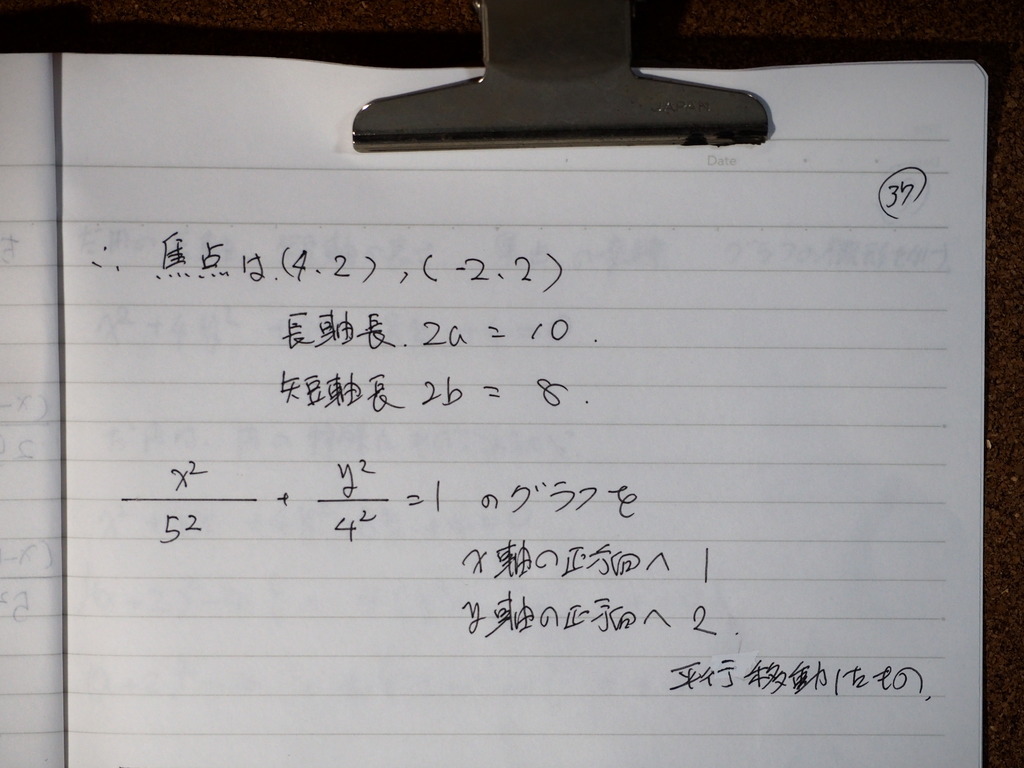 JAPAN
Date
37
∴ 焦点は (4、2) , (-2、2)
長軸長. 2a = 10 .
短軸長 2b = 8 .
x²/5² + y²/4² = 1 のグラフを
x軸の正方向へ 1
y軸の正方向へ 2 .
平行移動したもの.